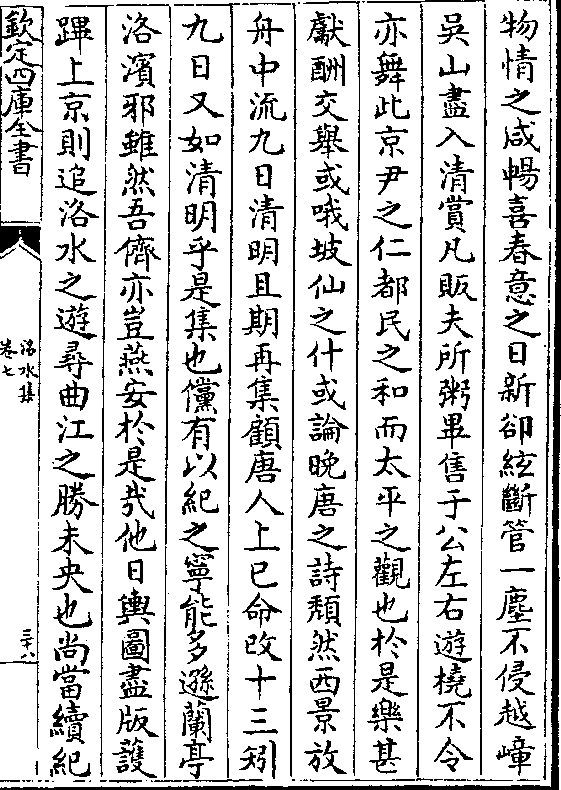 物情之咸暢喜春意之日新卻絃斷管一塵不侵越嶂
吳山盡入清賞凡販夫所粥畢售于公左右遊橈不令
亦舞此京尹之仁都民之和而太平之觀也於是樂甚
獻酬交舉或哦坡仙之什或論晚唐之詩頹然西景放
舟中流九日清明且期再集顧唐人上巳命改十三矧
九日又如清明乎是集也儻有以紀之寧能多遜蘭亭
洛濱邪雖然吾儕亦豈燕安於是㢤他日輿圖盡版護
蹕上京則追洛水之遊尋曲江之勝未央也尚當續紀
欽定四庫全書
洺水集
卷七
三十八